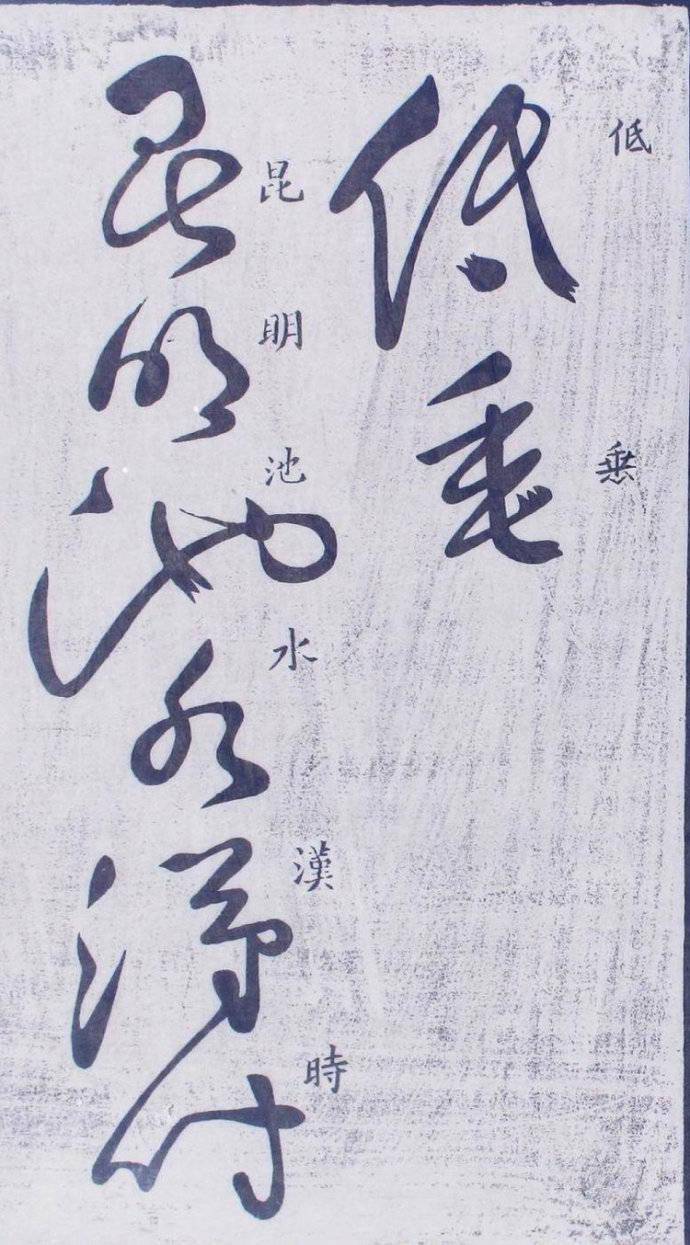 低垂
低垂
昆明池水漢時
昆明池水漢時